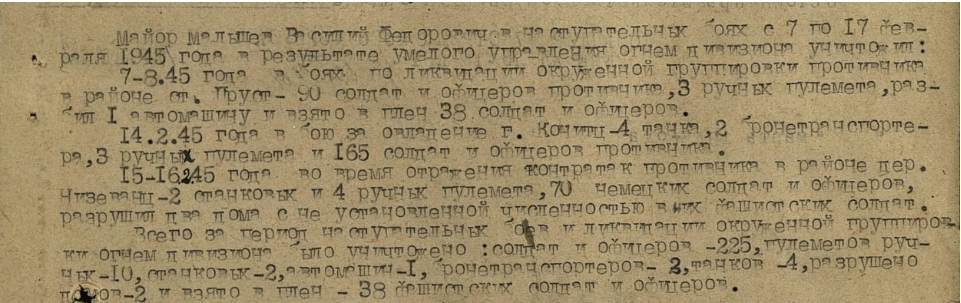 Майор малышев Василий Федорович в наступательных боях с 7 по 17 фев-
раля 1945 года в результате умелого управления огнем дивизиона уничтожил:
7-8.45 года в боях по ликвидации окруженной группировки противника
в районе ст. Пруст- 90 солдат и офицеров противника, 3 ручных пулемета, раз-
бил I автомашину и взято в плен 38 солдат и офицеров.
I4.2.45 года в бою за овладение г. Конитц-4 танка, 2 бронетранспорте-
ра, 3 ручных пулемета и I65 солдат и офицеров противника.
I5-I6.2.45 года во время отражения контратак противника в районе дер.
Чизеванц-2 станковых и 4 ручных пулемета, 70 немецких солдат и офицеров,
разрушил два дома с не установленной численностью в них фашистских солдат.
Всего за период наступательных боев и ликвидации окруженной группиров
ки огнем дивизиона было уничтожено :солдат и офицеров -225, пулеметов руч-
ных-I0, станковых-2, автомашин-I, бронетранспортеров- 2, танков -4, разрушено
домов-2 и взято в плен - 38 фашистских солдат и офицеров.